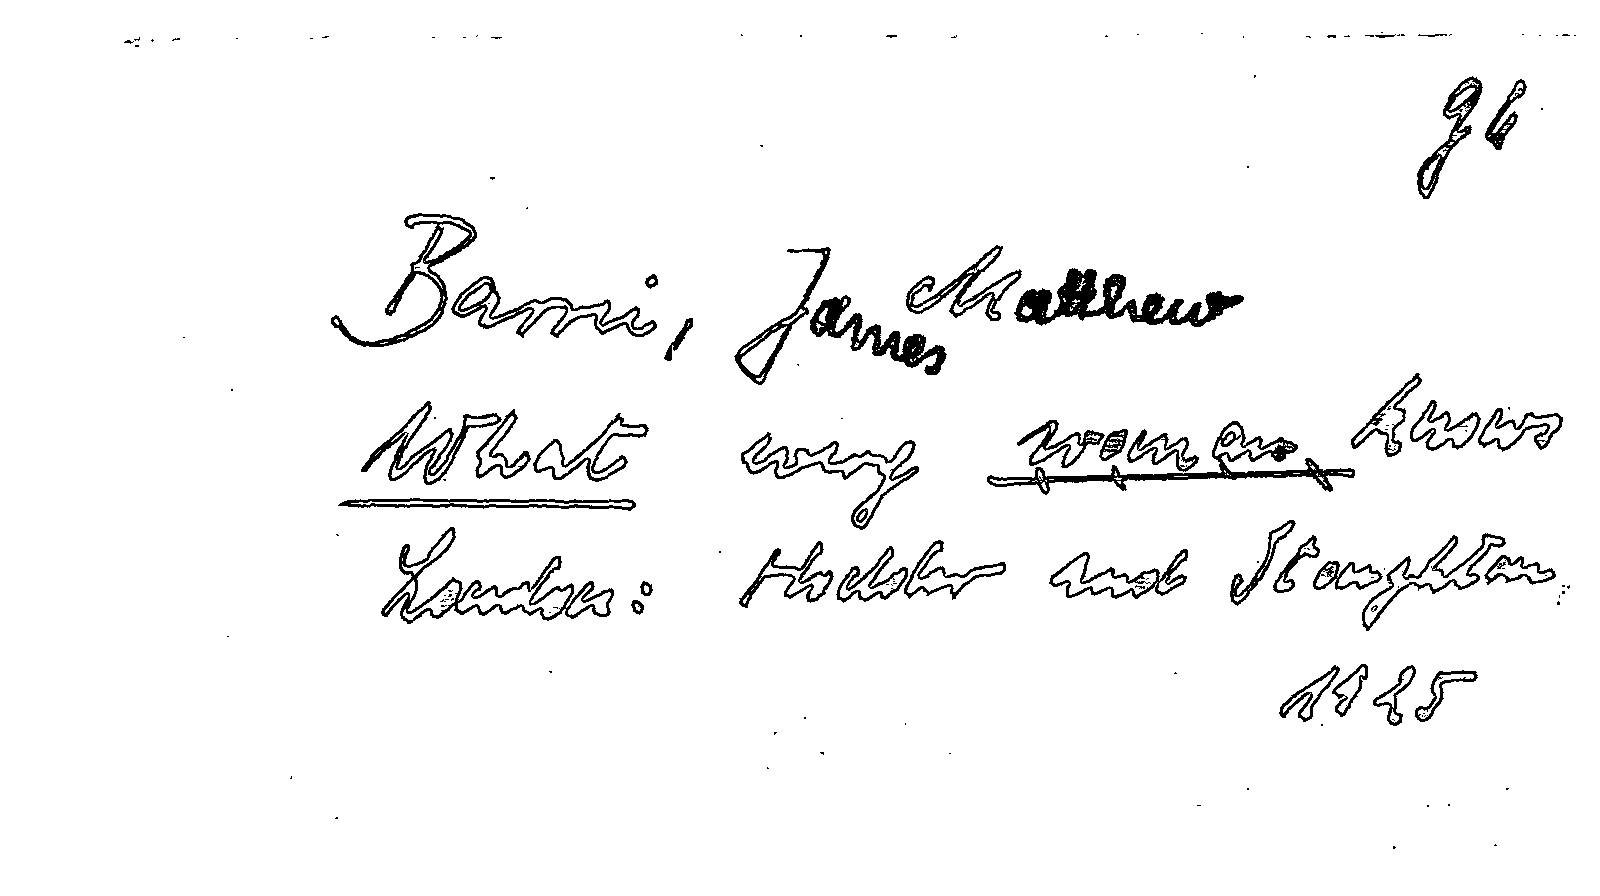 94
Barrie, James Matthew
What every woman knows
London: Hodder and Stoughton
1925